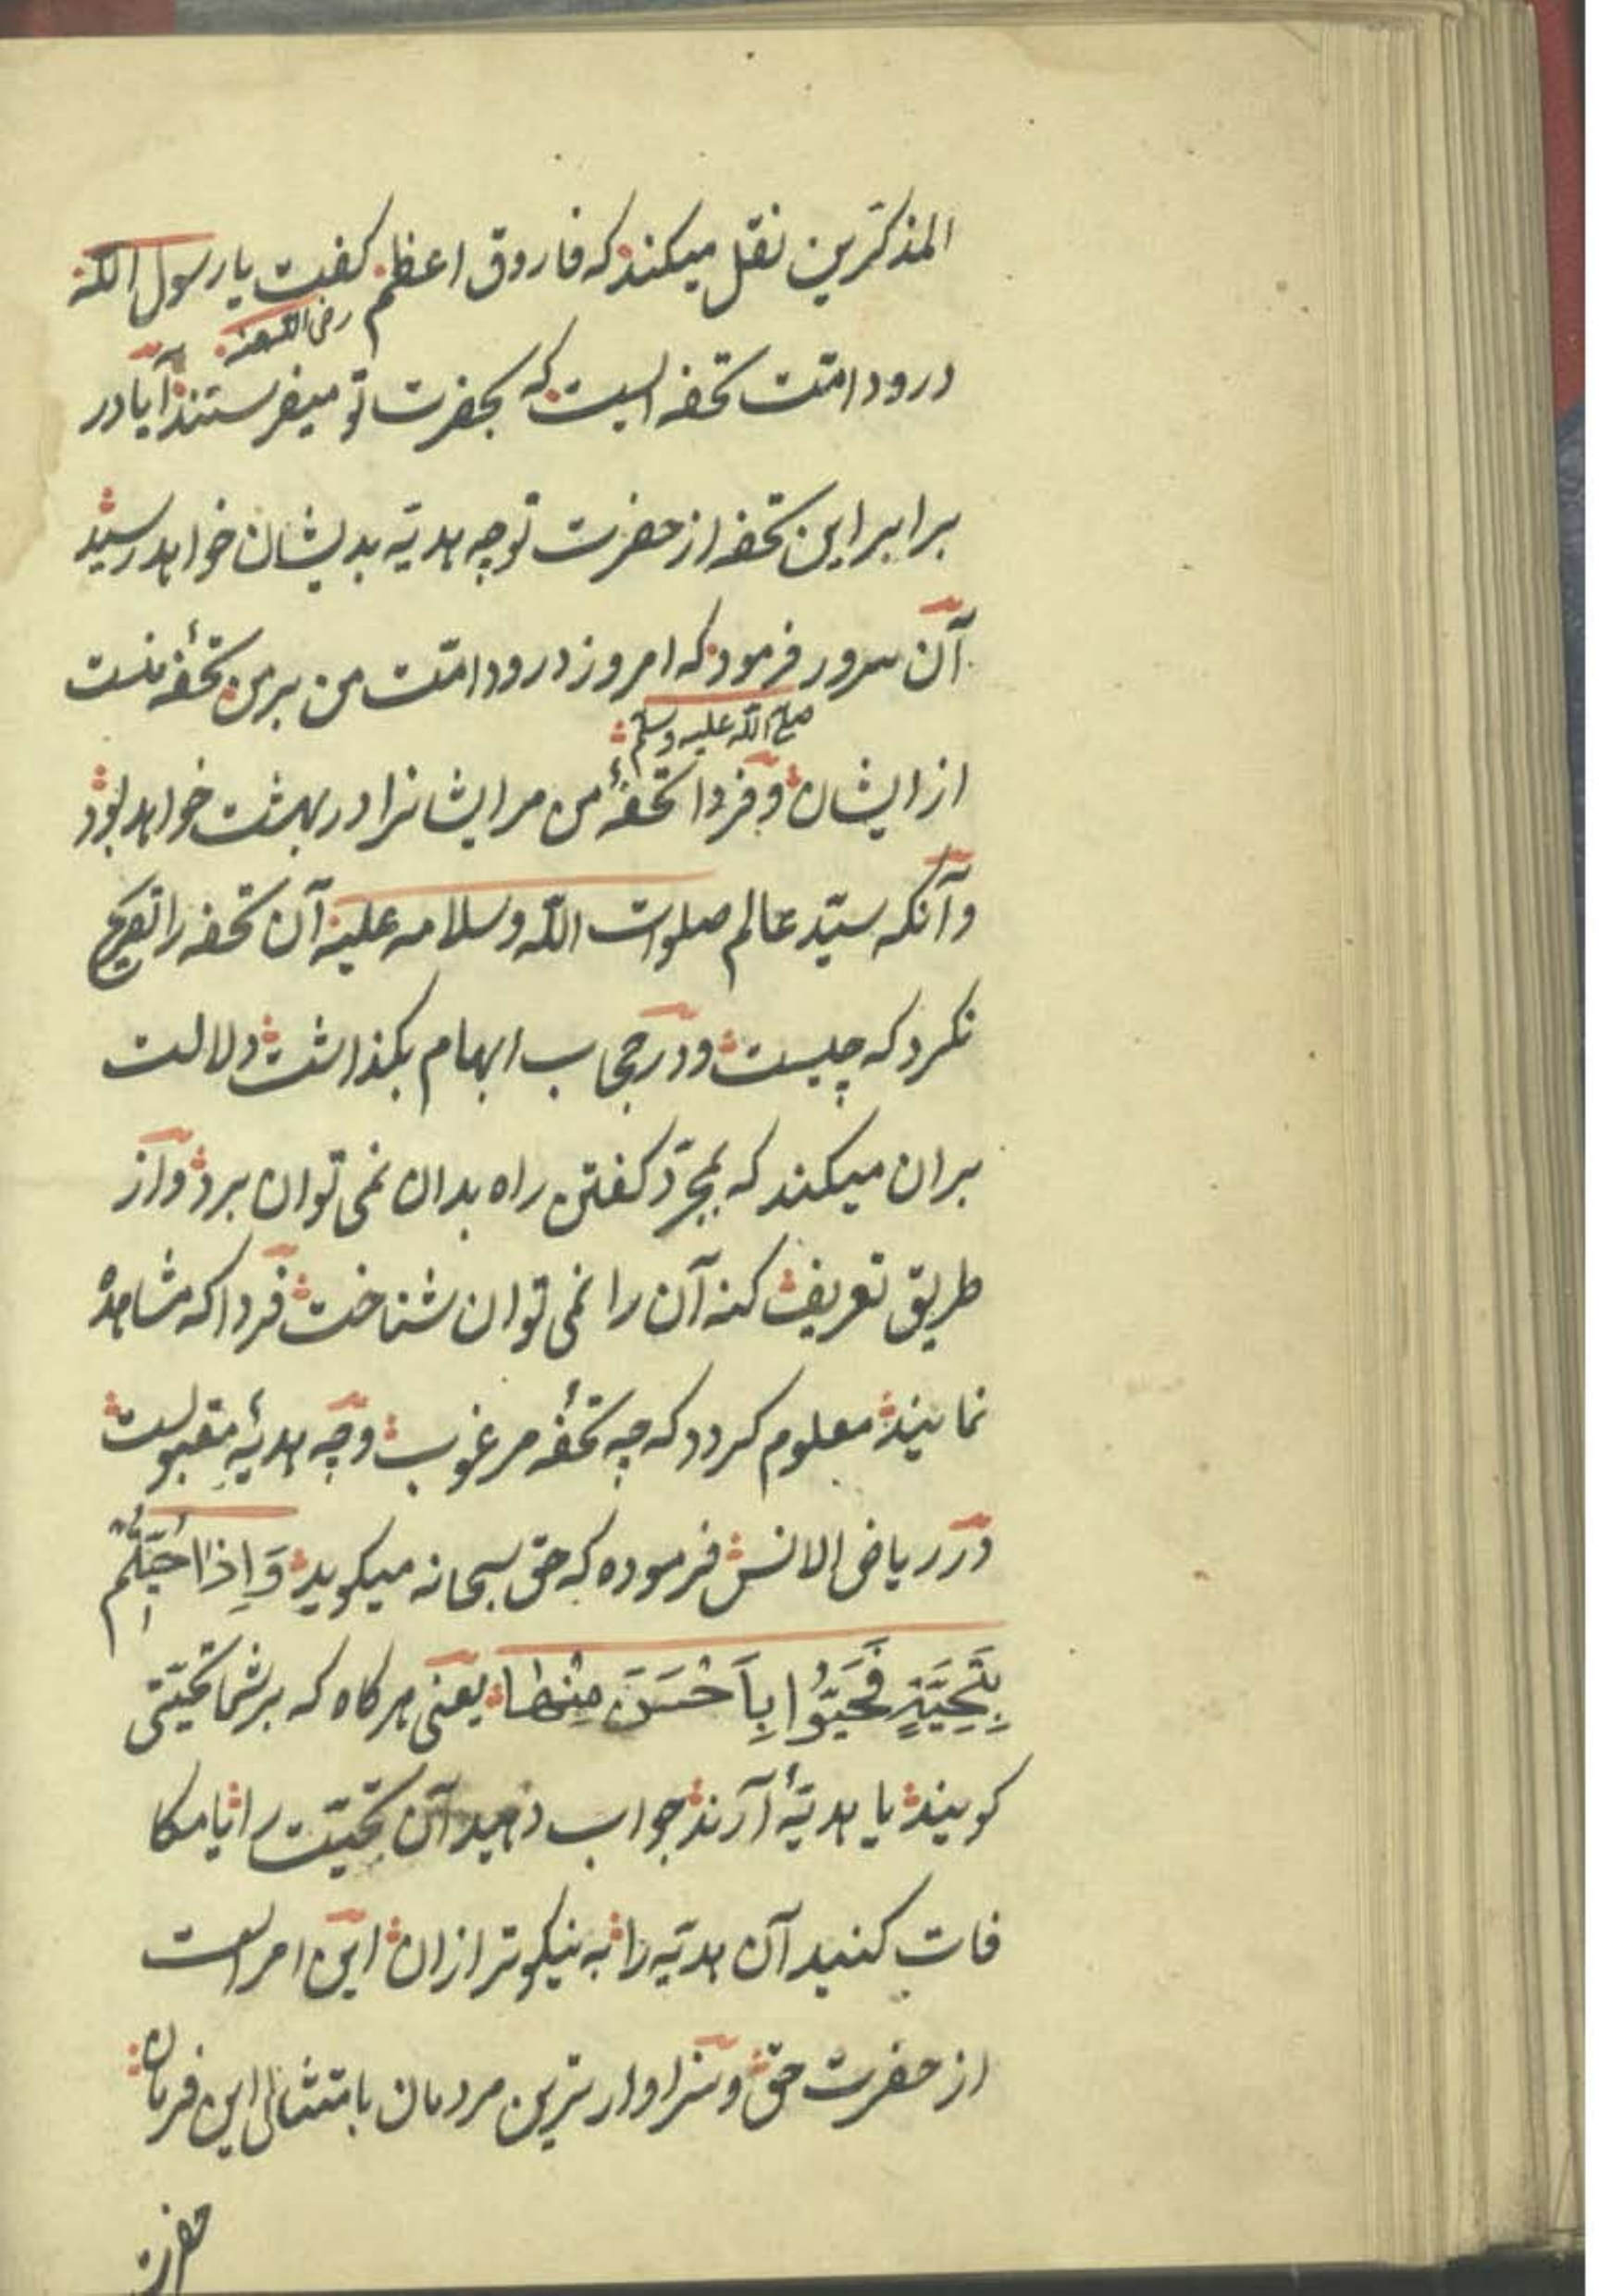 المذکرین نقل میکند که فاروق اعظم کفت یا رسول الله
رضی الله عنه
درود امّت تحفه ایست که بحضرت تو میفرستند آیا در
برابر این تحفه از حضرت تو چه هدیّه بدیشان خواهد رسید
آن سرور فرمود که امروز درود امّت من بر من تحفهٔ منست
صلی الله علیه وسلم
از ایشان و فردا تحفهٔ من مر ایشانرا در بهشت خواهد بود
و آنکه سیّد عالم صلوات الله وسلامه علیه آن تحفه را تصریح
نکرد که چیست و در حجاب ابهام بکذاشت دلالت
بران میکند که بمجرّد کفتن راه بدان نمی توان برد و از
طریق تعریف کنه آن را نمی توان شناخت فردا که مشاهدهٔ
نمایند معلوم کردد که چه تحفهٔ مرغوب و چه هدیهٔ مقبولست
در ریاض الانس فرموده که حق سبحانه میکوید وَاِذَا حُیِّیتُم
بِتَحِیَّةٍ فَحَیُّوا بِاَحْسَنَ مِنْهَا یعنی هرکاه که بر شما تحیّتی
کویند یا هدیّهٔ آرند جواب دهید آن تحیّت را یا مکا
فات کنید آن هدیّه را به نیکوتر ازان این امر است
از حضرت حق و سزاوار ترین مردمان بامتثال این فرمان
حضرت